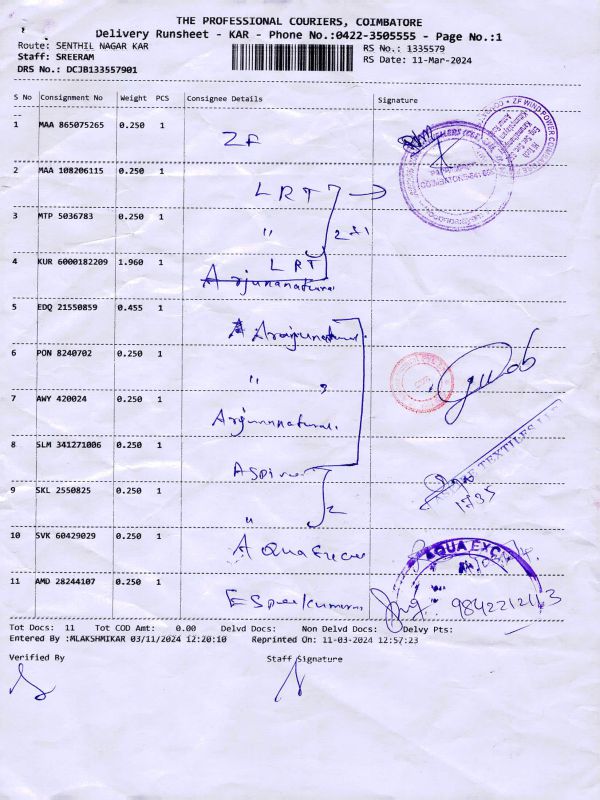 THE PROFESSIONAL COURIERS, COIMBATORE
Delivery Runsheet - KAR - Phone No.:0422-3505555 - Page No.:1
Route: SENTHIL NAGAR KAR RS No.: 1335579
Staff: SREERAM RS Date: 11-Mar-2024
DRS No.: DCJB133557901
S No Consignment No Weight PCS Consignee Details Signature
--
1 MAA 865075265 0.250 1 ZF
2 MAA 108206115 0.250 1 LRT
3 MTP 5036783 0.250 1 "
4 KUR 6000182209 1.960 1 LRT
Arjunanatural
5 EDQ 21550859 0.455 1
6 PON 8240702 0.250 1 "
7 AWY 420024 0.250 1 Arjunanatural
8 SLM 341271006 0.250 1
9 SKL 2550825 0.250 1 " 2
1735
10 SVK 60429029 0.250 1
AQUA EXCE
11 AMD 28244107 0.250 1
Tot Docs: 11 Tot COD Amt: 0.00 Delvd Docs: Non Delvd Docs: Delvy Pts:
Entered By :MLAKSHMIKAR 03/11/2024 12:20:10 Reprinted On: 11-03-2024 12:57:23
Verified By Staff Signature